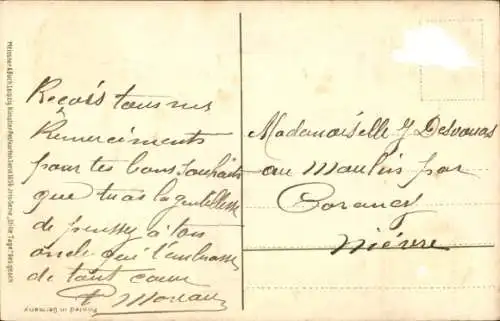 Reçois tous mes
Remerciments
pour tes bons souhaits
que tu as la gentillesse
de penser a ton
oncle qui t'embrasse
de tout cœur
P Moreau
Mademoiselle J Desvoues
au Moulin par
Corancy
Nièvre
Meissner & Buch, Leipzig Künstler-Postkarten Serie
Printed in Germany